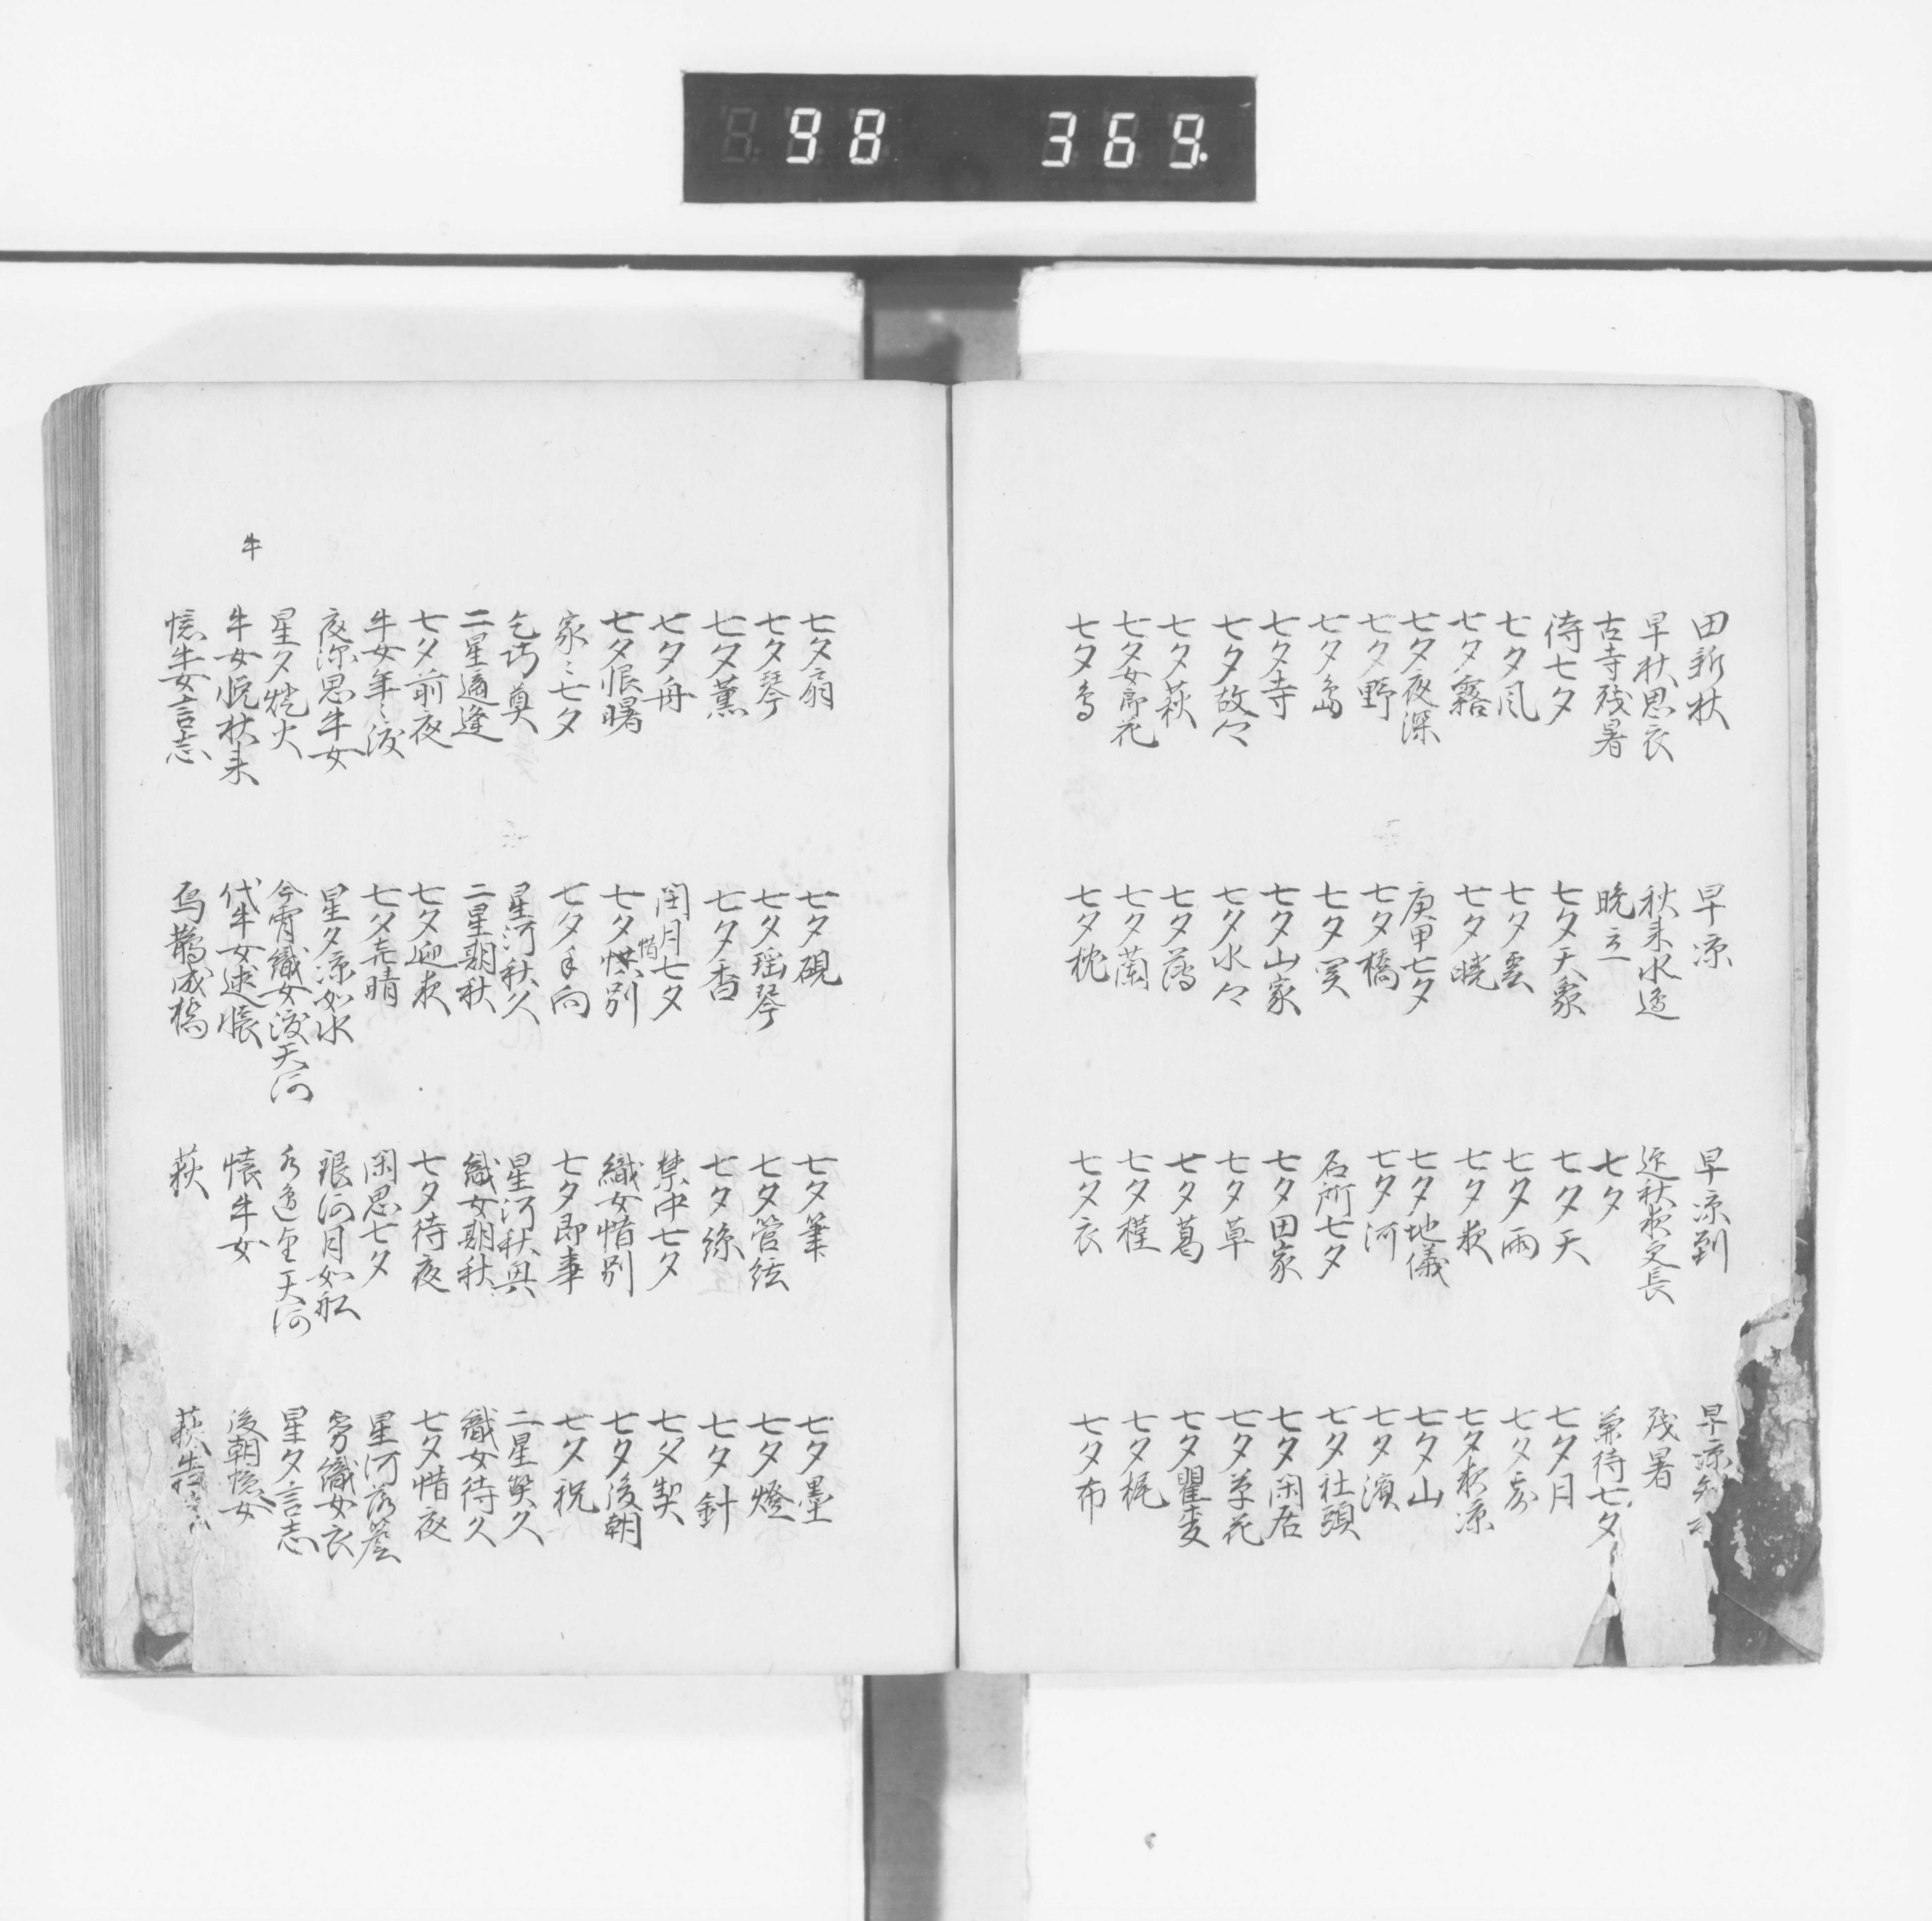 98 369.
田新秋 早凉 早凉到 早凉
早秋思衣 秋来水邊 近秋夜文長 残暑
古寺残暑 晩立 七夕 兼待七夕
待七夕 七夕天象 七夕天 七夕月
七夕風 七夕雲 七夕雨
七夕霧 七夕暁 七夕夜 七夕夜凉
七夕夜深 庚申七夕 七夕地儀 七夕山
七夕野 七夕橋 七夕河 七夕濱
七夕島 七夕関 名所七夕 七夕社頭
七夕寺 七夕山家 七夕田家 七夕閑居
七夕故々 七夕水々 七夕草 七夕草花
七夕萩 七夕薄 七夕葛 七夕瞿麦
七夕女郎花 七夕蘭 七夕槿 七夕梶
七夕鳥 七夕枕 七夕衣 七夕布
七夕扇 七夕硯 七夕筆 七夕墨
七夕琴 七夕瑶琴 七夕管絃 七夕燈
七夕薫 七夕香 七夕絲 七夕針
七夕舟 閏月七夕 禁中七夕 七夕契
七夕恨曙 七夕惜別 織女惜別 七夕後朝
家〻七夕 七夕手向 七夕即事 七夕祝
乞巧奠 星河秋久 星河秋興 二星契久
二星適逢 二星期秋 織女期秋 織女待久
七夕前夜 七夕迎夜 七夕待夜 七夕惜夜
牛女年〻渡 七夕克晴 閑思七夕 星河落簷
夜深思牛女 星夕凉如水 銀河月如船 織女衣
星夕燈火 今宵織女渡天河 水邊望天河 星夕言志
牛
牛女悦秋来 代牛女述懐 懐牛女 後朝憶女
憶牛女言志 烏鵲成橋 萩 萩告